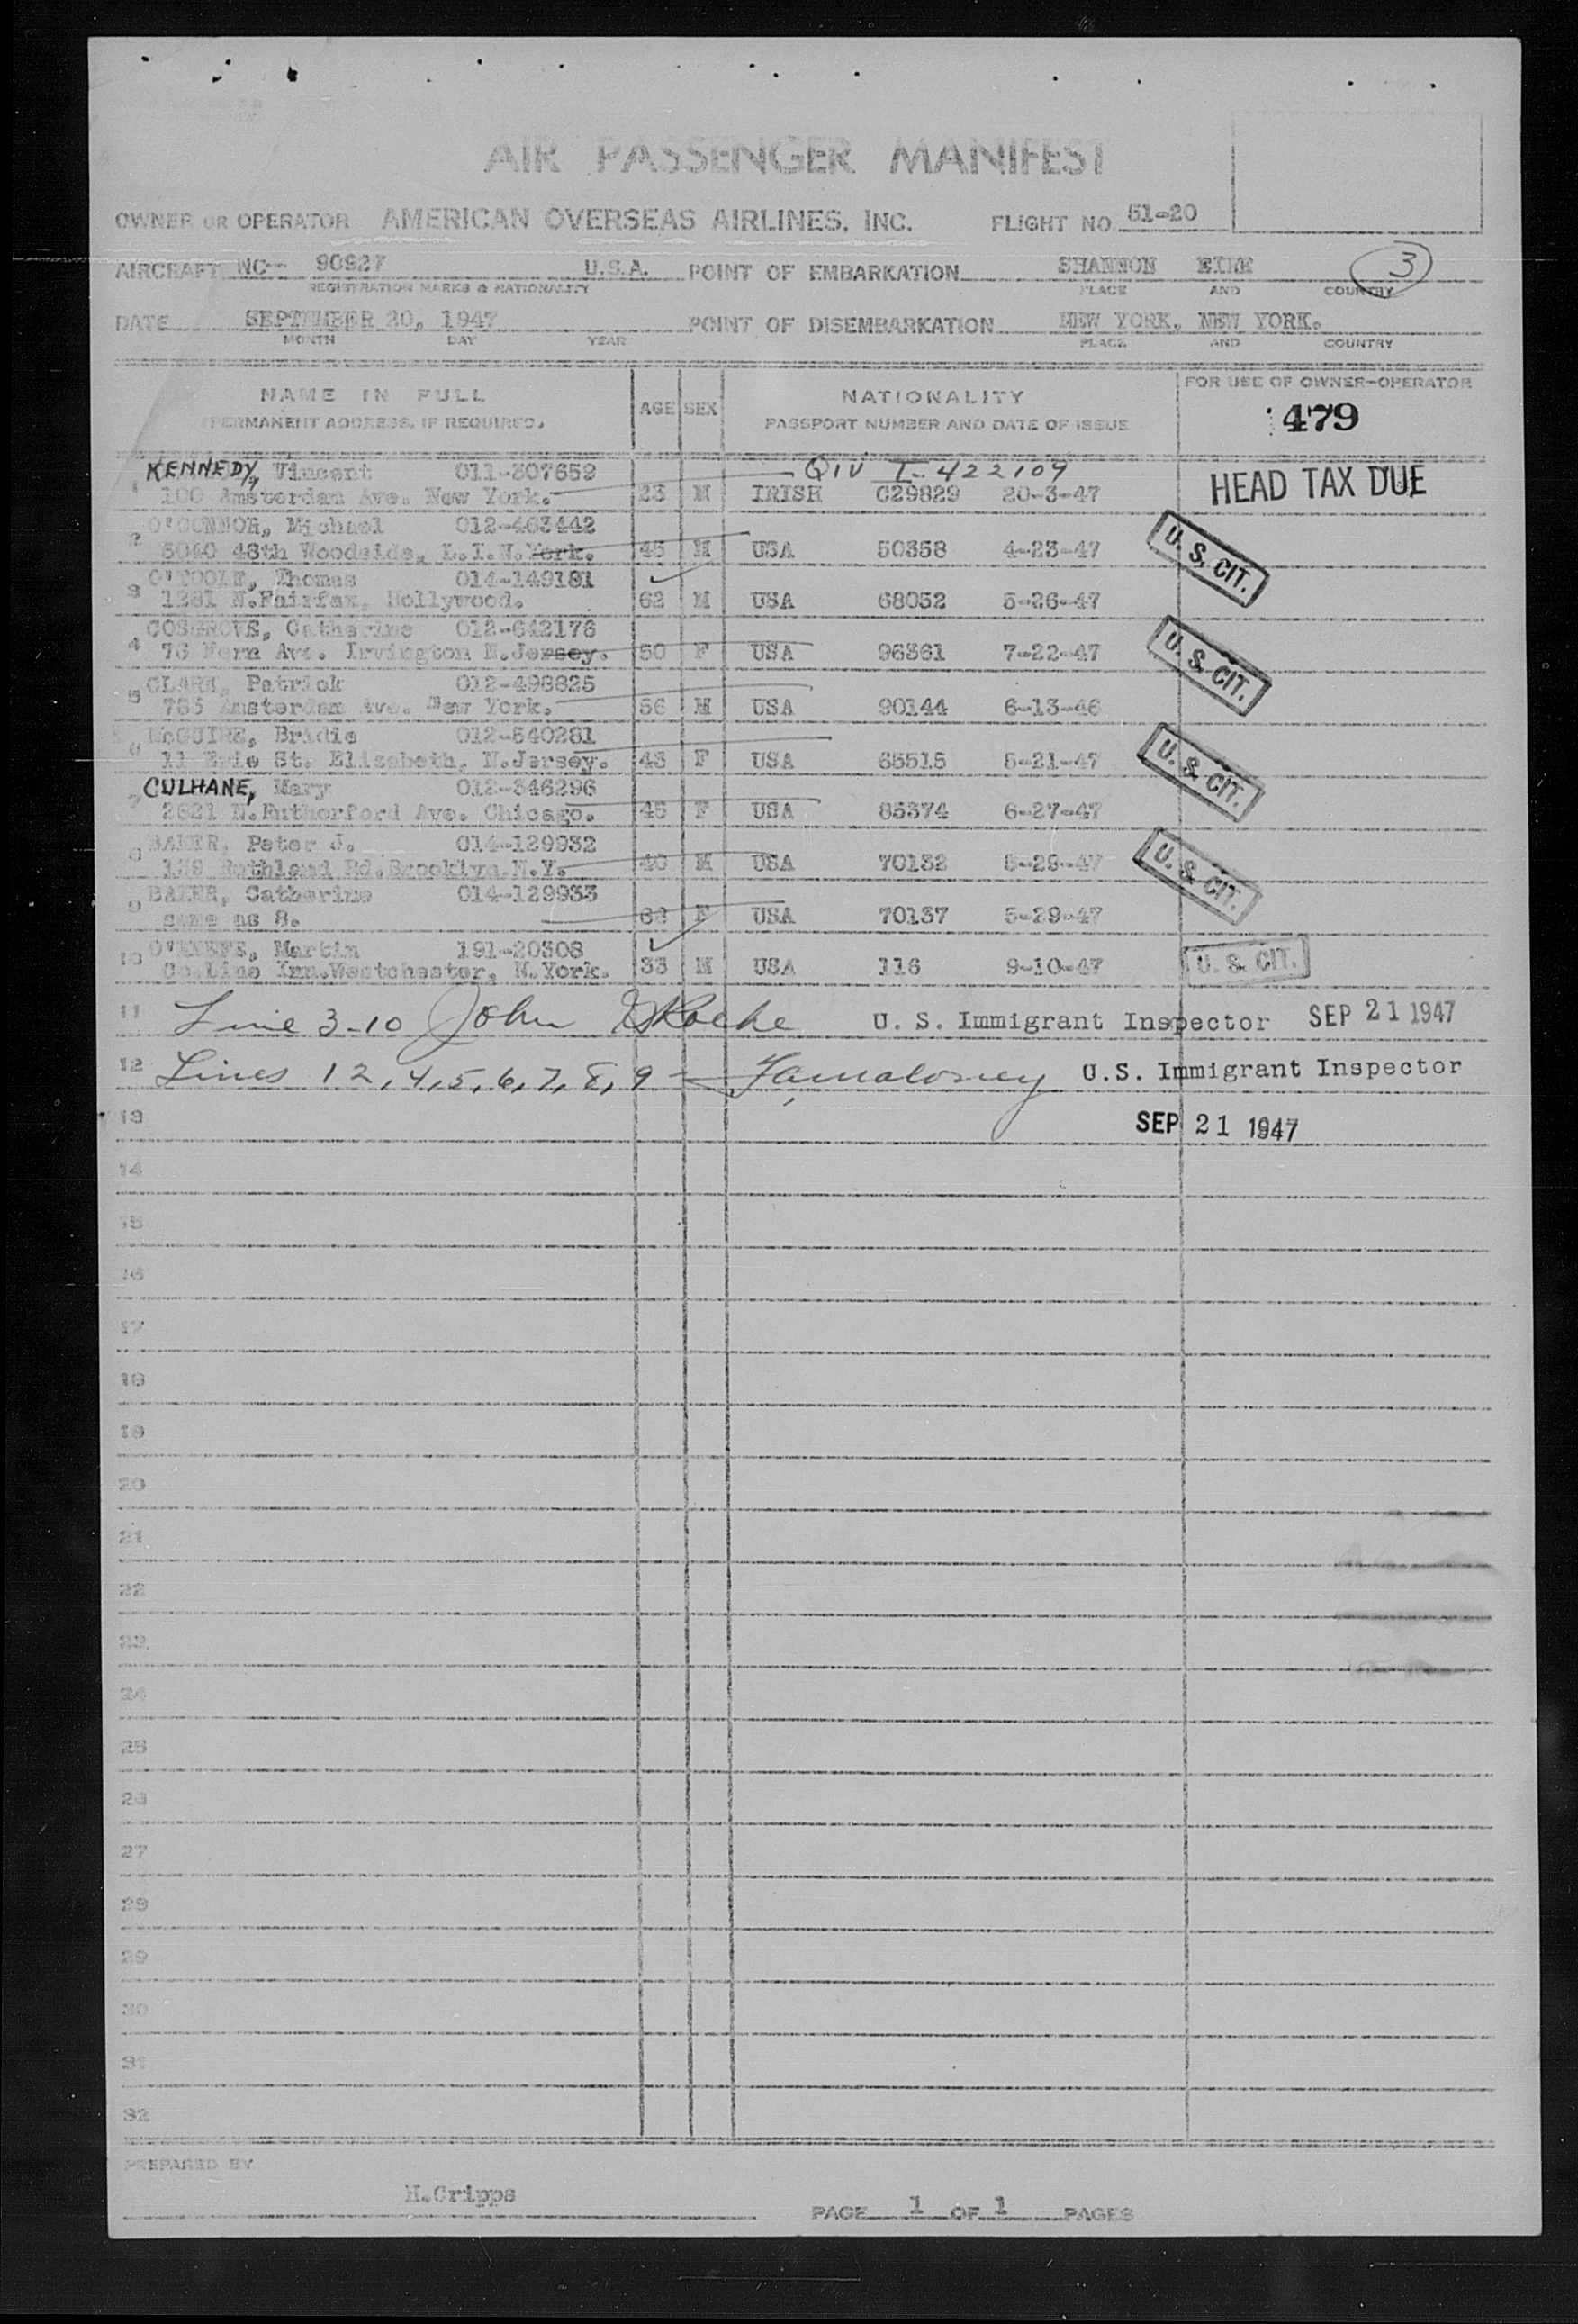 AIR PASSENGER MANIFEST
OWNER OR OPERATOR AMERICAN OVERSEAS AIRLINES, INC. FLIGHT NO. 51-20
AIRCRAFT NC- 90927 U.S.A. POINT OF EMBARKATION SHANNON EIRE 3
REGISTRATION MARKS & NATIONALITY PLACE AND COUNTRY
DATE SEPTEMBER 20, 1947 POINT OF DISEMBARKATION NEW YORK, NEW YORK.
MONTH DAY YEAR PLACE AND COUNTRY
NAME IN FULL AGE SEX NATIONALITY FOR USE OF OWNER-OPERATOR
PERMANENT ADDRESS, IF REQUIRED. PASSPORT NUMBER AND DATE OF ISSUE 479
KENNEDY, Vincent 011-307659 QIV I-422109 HEAD TAX DUE
1 100 Amsterdam Ave. New York. 23 M IRISH C29829 20-3-47
O'CONNOR, Michael 012-463442
2 5040 48th Woodside, L.I.N.York. 45 M USA 50358 4-23-47 U. S. CIT.
O'TOOLE, Thomas 014-149181
3 1281 N.Fairfax, Hollywood. 62 M USA 68052 5-26-47
COSGROVE, Catherine 012-642176
4 76 Fern Ave. Irvington N.Jersey. 50 F USA 96361 7-22-47 U. S. CIT.
CLARK, Patrick 012-498825
5 785 Amsterdam Ave. New York. 56 M USA 90144 6-13-46
McGUIRE, Bridie 012-540281
6 11 Erie St. Elizabeth, N.Jersey. 43 F USA 65515 5-21-47 U. S. CIT.
CULHANE, Mary 012-346296
7 2821 N.Rutherford Ave. Chicago. 45 F USA 85374 6-27-47
BAKER, Peter J. 014-129932
8 159 Ruthland Rd.Brooklyn.N.Y. 40 M USA 70132 5-29-47 U. S. CIT.
BAKER, Catherine 014-129933
9 same as 8. F USA 70137 5-29-47
Martin 191-20308
10 Inn.Westchester, N.York. 33 M USA 116 9-10-47 U. S. CIT.
11 Line 3-10 John Roche U. S. Immigrant Inspector SEP 21 1947
12 Lines 1 2, 4, 5, 6, 7, 8, 9 - U.S. Immigrant Inspector
13 SEP 21 1947
14
15
16
17
18
19
20
21
22
23
24
25
26
27
28
29
30
31
32
PREPARED BY
H.Cripps
PAGE 1 OF 1 PAGES